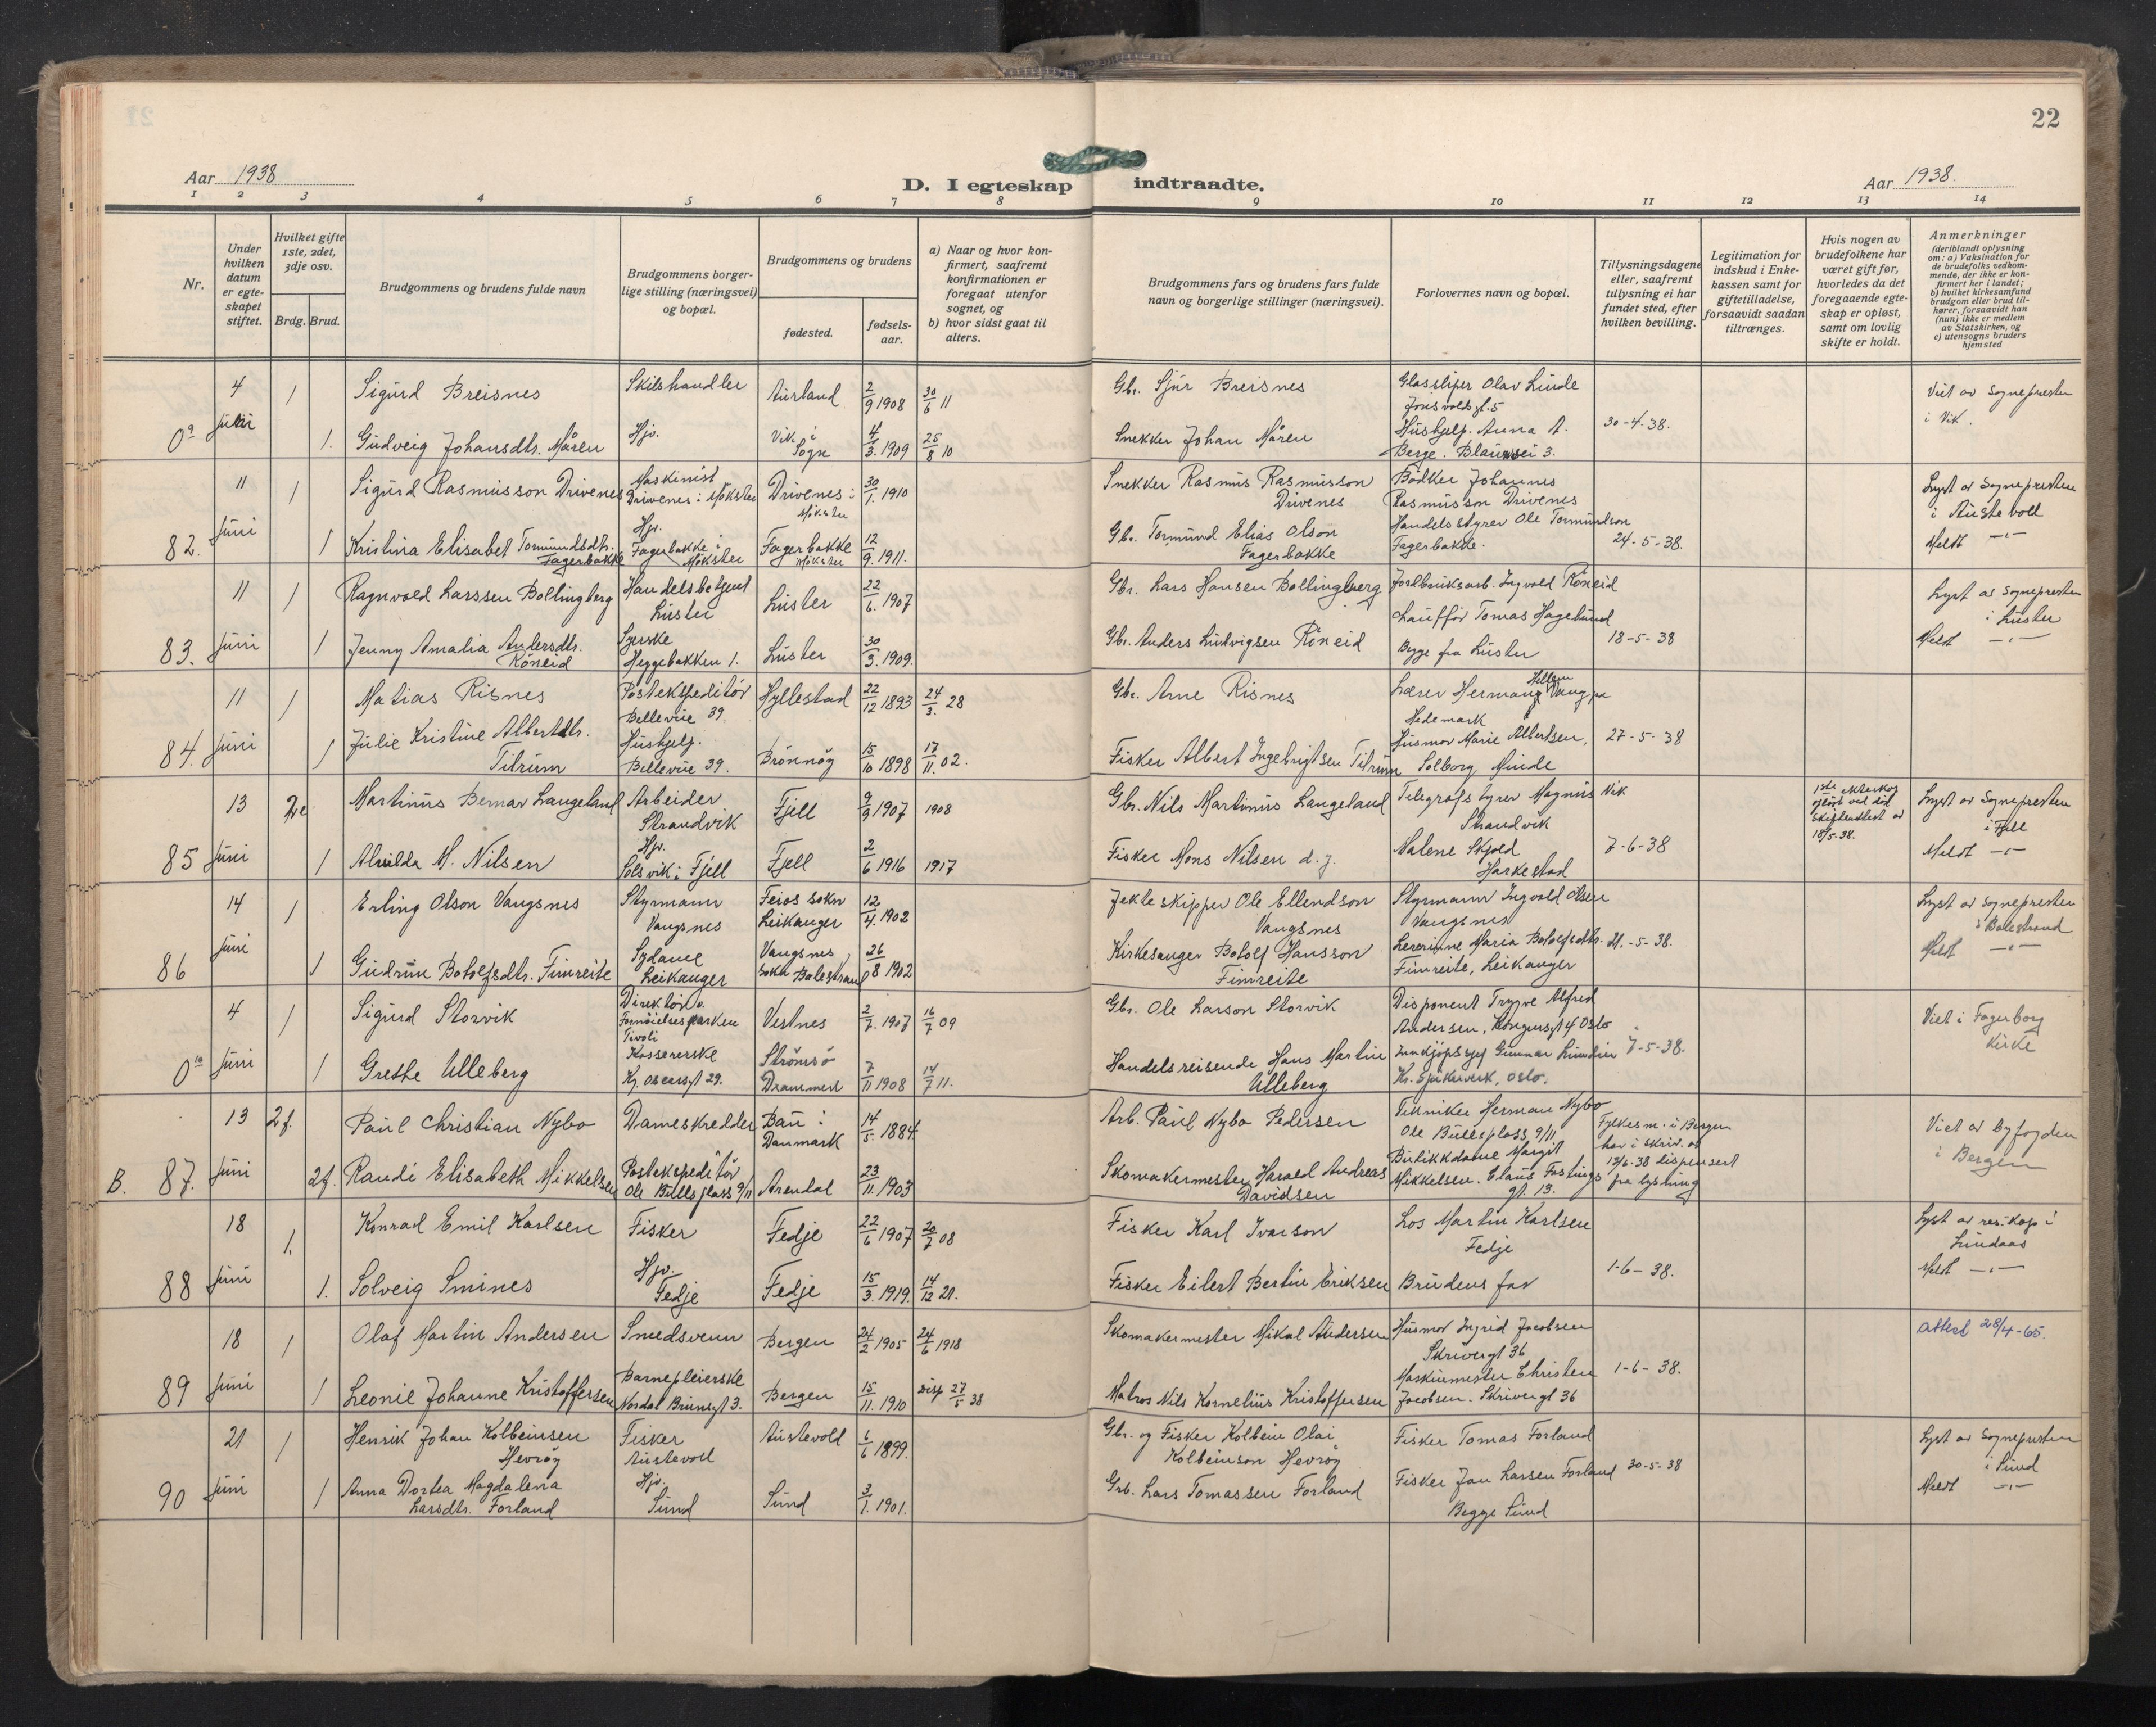 22
Aar 1938
D. I egteskap indtraadte.
Aar 1938.
1 2 3 4 5 6 7 8 9 10 11 12 13 14
Nr.
Under hvilken datum er egteskapet stiftet.
Hvilket gifte 1ste, 2det, 3dje osv.
Brdg. Brud.
Brudgommens og brudens fulde navn
Brudgommens borgerlige stilling (næringsvei) og bopæl.
Brudgommens og brudens
fødested.
fødselsaar.
a) Naar og hvor konfirmert, saafremt konfirmationen er foregaat utenfor sognet, og
b) hvor sidst gaat til alters.
Brudgommens fars og brudens fars fulde navn og borgerlige stillinger (næringsvei).
Forlovernes navn og bopæl.
Tillysningsdagene eller, saafremt tillysning ei har fundet sted, efter hvilken bevilling.
Legitimation for indskud i Enkekassen samt for giftetilladelse, forsaavidt saadan tiltrænges.
Hvis nogen av brudefolkene har været gift før, hvorledes da det foregaaende egteskap er opløst, samt om lovlig skifte er holdt.
Anmerkninger
(deriblandt oplysning om: a) Vaksination for de brudefolks vedkommende, der ikke er konfirmert her i landet; b) hvilket kirkesamfund brudgom eller brud tilhører, forsaavidt han (hun) ikke er medlem av Statskirken, og c) utensogns bruders hjemsted
4 1 Sigurd Breisnes Skilshandler Aurland 2/9 1908 30/6 11 Gbr. Sjur Breisnes Glassliper Olav Linde Viet av Sognepresten
Jonsvoldsgt. 5 i Vik.
0⁹ Juni 1. Gudveig Johansdtr. Måren Hjv. Vik i Sogn 4/3. 1909 25/8 10 Snekker Johan Måren Hushjelp. Anna A. 30-4-38.
Berge. Blauwsei 3.
11 1 Sigurd Rasmusson Drivenes Maskinist Drivenes i Møkster Drivenes i Møkster 30/1. 1910 Snekker Rasmus Rasmusson Drivenes Bødker Johannes Rasmusson Drivenes Lyst av Sognepresten i Austevoll
82. Juni 1 Kristina Elisabet Tormundsdtr. Fagerbakke Hjv. Fagerbakke i Møkster Fagerbakke Møkster 12/9. 1911. Gbr. Tormund Elias Olson Fagerbakke Handelsstyrer Ole Tormundson Fagerbakke. 24-5-38. Meldt -"-
11 1 Ragnvald Larssen Bollingberg Handelsbetjent Luster Luster 22/6. 1907 Gbr. Lars Hansen Bollingberg Jordbruksarb. Ingvald Røneid Lyst av Sognepresten i Luster
83. Juni 1 Jenny Amalia Andersdtr. Røneid Syerske Heggebakken 1. Luster 30/3. 1909. Gbr. Anders Ludvigsen Røneid Chauffør Tomas Hagelund Begge fra Luster 18-5-38 Meldt -"-
11 1 Matias Risnes Postekspeditør Bellevue 39. Hyllestad 22/12 1893 24/3. 28 Gbr. Arne Risnes Lærer Herman Vang, Hedemark
84. Juni 1 Julie Kristine Albertsdtr. Titrum Hushjelp. Bellevue 39. Brønnøy 15/10 1898 17/11. 02. Fisker Albert Ingebrigtsen Titrum Husmor Marie Albertsen, Solborg Minde 27-5-38
13 2re Martinus Bernar Langeland Arbeider Strandvik Fjell 9/9 1907 1908 Gbr. Nils Martinus Langeland Telegrafstyrer Magnus Vik Strandvik 1ste ekteskap opløst ved død skifteattest av 18/5-38. Lyst av Sognepresten i Fjell
85 Juni 1 Alvilda M. Nilsen Hjv. Solsvik i Fjell Fjell 2/6 1916 1917 Fisker Mons Nilsen d.y. Malene Skjold Harkestad 7-6-38 Meldt -"-
14 1 Erling Olson Vangsnes Styrmann Vangsnes Feios sokn Leikanger 12/4. 1902 Jekteskipper Ole Ellendson Vangsnes Styrmann Ingvald Olsen Vangsnes Lyst av Sognepresten i Balestrand
86 Juni 1 Gudrun Botolfsdtr. Fimreite Sydame Leikanger Vangsnes sokn Balestrand 26/8 1902 Kirkesanger Botolf Hansson Fimreite Lærerinne Maria Botolfsdtr. Fimreite, Leikanger 21.-5-38. Meldt -"-
4 1 Sigurd Storvik Direktør v. Fornøielsesparken Tivoli Vestnes 2/7. 1907 16/7 09 Gbr. Ole Larson Storvik Disponent Trygve Alfred Andersen, Kongensgt 4 Oslo Viet i Fagerborg Kirke
0¹⁰ Juni 1 Grethe Ulleberg Kassererske Kg. Oscarsgt 29. Strømsø Drammen 7/11 1908 14/7 11. Handelsreisende Hans Martin Ulleberg Innkjøpssjef Gunnar Lundin Kr. Spikerverk, Oslo. 7-5-38.
13 2g. Paul Christian Nybo Dameskredder Bau i Danmark 14/5. 1884. Arb. Paul Nybo Pedersen Tekniker Herman Nybo Ole Bullsplass 9/11 Fylkesm. i Bergen har i skriv. av 13/6-38 dispensert fra lysning Viet av Byfogden i Bergen
B. 87. Juni 2g. Randi Elisabeth Mikkelsen Postekspeditør Ole Bulls plass 9/11 Arendal 23/11. 1903 Skomakermester Harald Andreas Davidsen Butikkdame Margit Mikkelsen. Claus Fastings gt. 13.
18 1. Konrad Emil Karlsen Fisker Fedje 22/6 1907 20/7 08 Fisker Karl Ivarson Los Martin Karlsen Fedje Lyst av res. kap. i Lindaas
88 Juni 1. Solveig Smines Hjv. Fedje Fedje 15/3. 1919. 14/12 21. Fisker Eilert Bertin Eriksen Brudens far 1-6-38. Meldt -"-
18 1 Olaf Martin Andersen Smedsvenn Bergen 24/2 1905 24/6 1918 Skomakermester Mikal Andersen Husmor Ingrid Jacobsen Skrivergt 36 Attest 28/4-65.
89 Juni 1 Leonie Johanne Kristoffersen Barnepleierske Nordal Brunsgt 3. Bergen 15/11. 1910 Disp 27/5 38 Matros Nils Kornelius Kristoffersen Maskinmester Christen Jacobsen. Skrivergt 36 1-6-38.
21 1 Henrik Johan Kolbeinsen Hevrøy Fisker Austevoll Austevold 6/6 1899. Gbr. og Fisker Kolbein Olai Kolbeinson Hevrøy Fisker Tomas Forland Lyst av Sognepresten i Sund
90 Juni 1 Anna Dortea Magdalena Larsdtr. Forland Hjv. Sund Sund 3/1. 1901. Grb. Lars Tomassen Forland Fisker Jan Larsen Forland Begge Sund 30-5-38 Meldt -"-